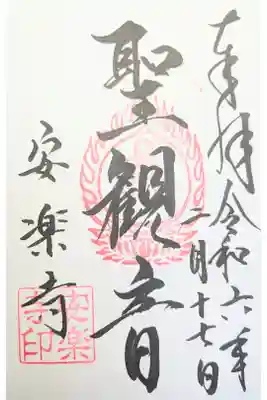 奉拝令和六年
一月十七日
聖観音
安楽寺
安楽
寺印